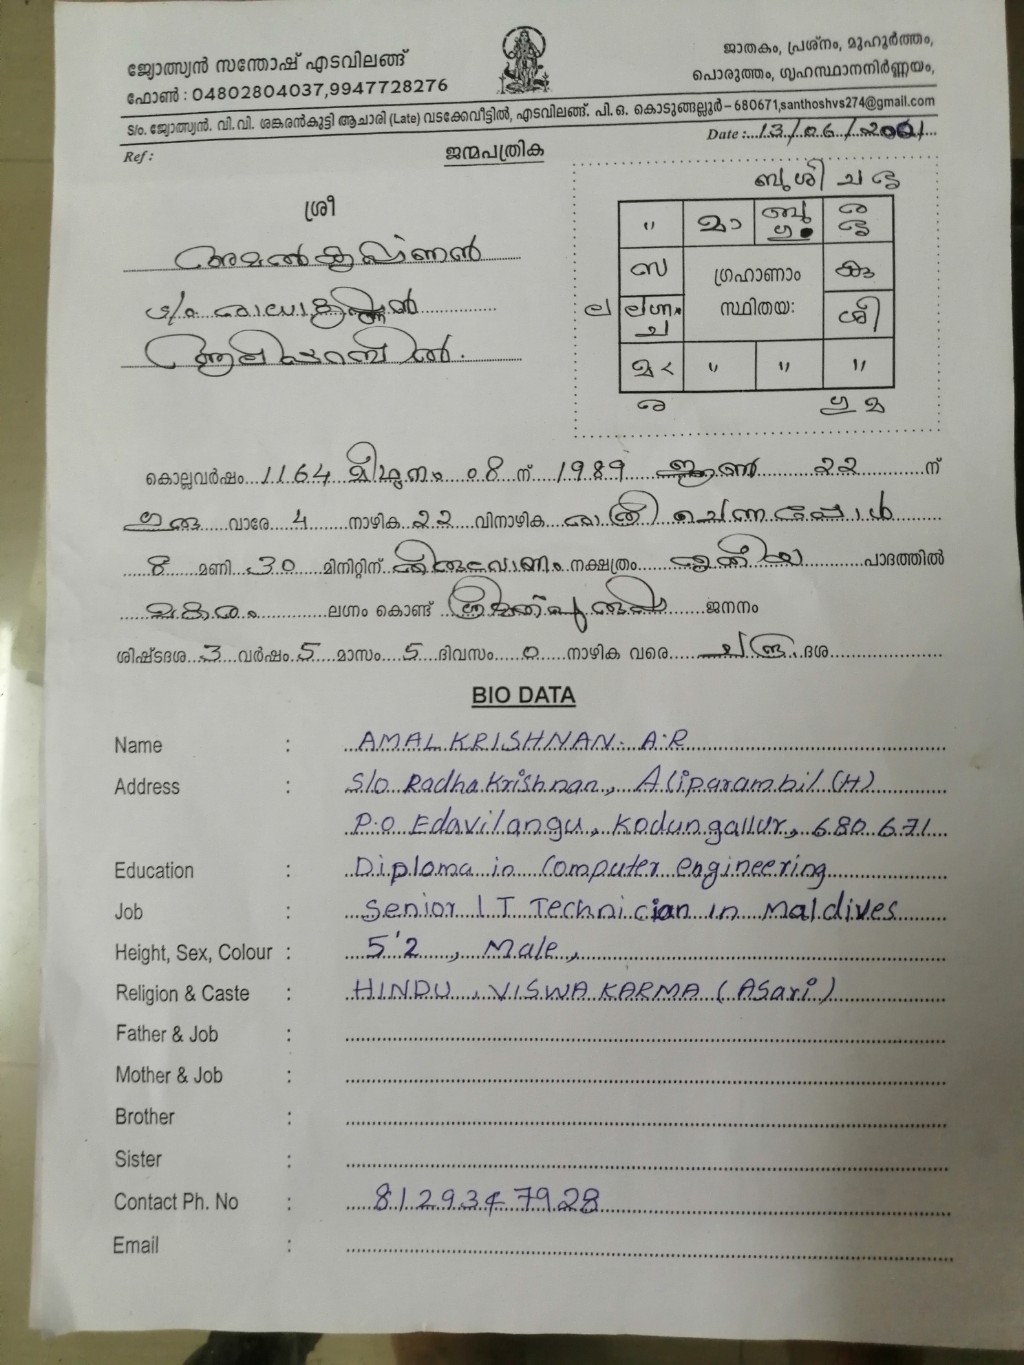 ജ്യോത്സ്യൻ സന്തോഷ് എടവിലങ്ങ്
ഫോൺ : 04802804037,9947728276
ജാതകം, പ്രശ്നം, മുഹൂർത്തം,
പൊരുത്തം, ഗൃഹസ്ഥാനനിർണ്ണയം,
S/o. ജ്യോത്സ്യൻ. വി.വി. ശങ്കരൻകുട്ടി ആചാരി (Late) വടക്കേവീട്ടിൽ, എടവിലങ്ങ്. പി.ഒ. കൊടുങ്ങല്ലൂർ – 680671,santhoshvs274@gmail.com
Ref :
Date : 13/06/2021
ജന്മപത്രിക
ശ്രീ
അമൽകൃഷ്ണൻ
S/o രാധാകൃഷ്ണൻ
ആലിപ്പറമ്പിൽ.
ബു ശി ച
" മാ ബു ഗു
സ ഗ്രഹാണാം കു
ല ലഗ്നം ച സ്ഥിതയ: ശി
" " "
ഗു മ
കൊല്ലവർഷം 1164 മിഥുനം 08 ന് 1989 ജൂൺ 22 ന്
വാരേ 4 നാഴിക 22 വിനാഴിക രാത്രി ചെന്നപ്പോൾ
8 മണി 30 മിനിറ്റിന് തിരുവോണം നക്ഷത്രം തൃതീയ പാദത്തിൽ
മകരം ലഗ്നം കൊണ്ട് ജനനം
ശിഷ്ടദശ 3 വർഷം 5 മാസം 5 ദിവസം 0 നാഴിക വരെ ചന്ദ്ര ദശ
BIO DATA
Name : AMAL KRISHNAN. A.R
Address : S/o Radhakrishnan, Aliparambil (H)
P.O Edavilangu, Kodungallur, 680 671
Education : Diploma in Computer engineering
Job : Senior IT Technician in Maldives
Height, Sex, Colour : 5'2, Male,
Religion & Caste : HINDU, VISWAKARMA (Asari)
Father & Job :
Mother & Job :
Brother :
Sister :
Contact Ph. No : 8129347928
Email :